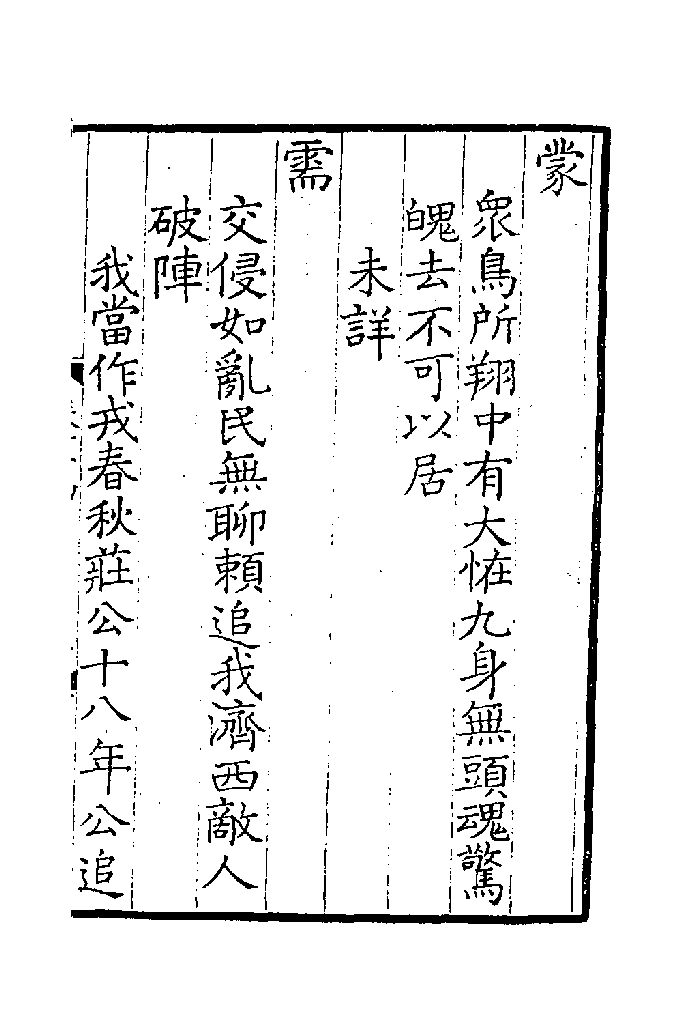 蒙
衆鳥所翔中有大恠九身無頭魂驚
魄去不可以居
未詳
需
交侵如亂民無聊賴追我濟西敵人
破陣
我當作戎春秋莊公十八年公追